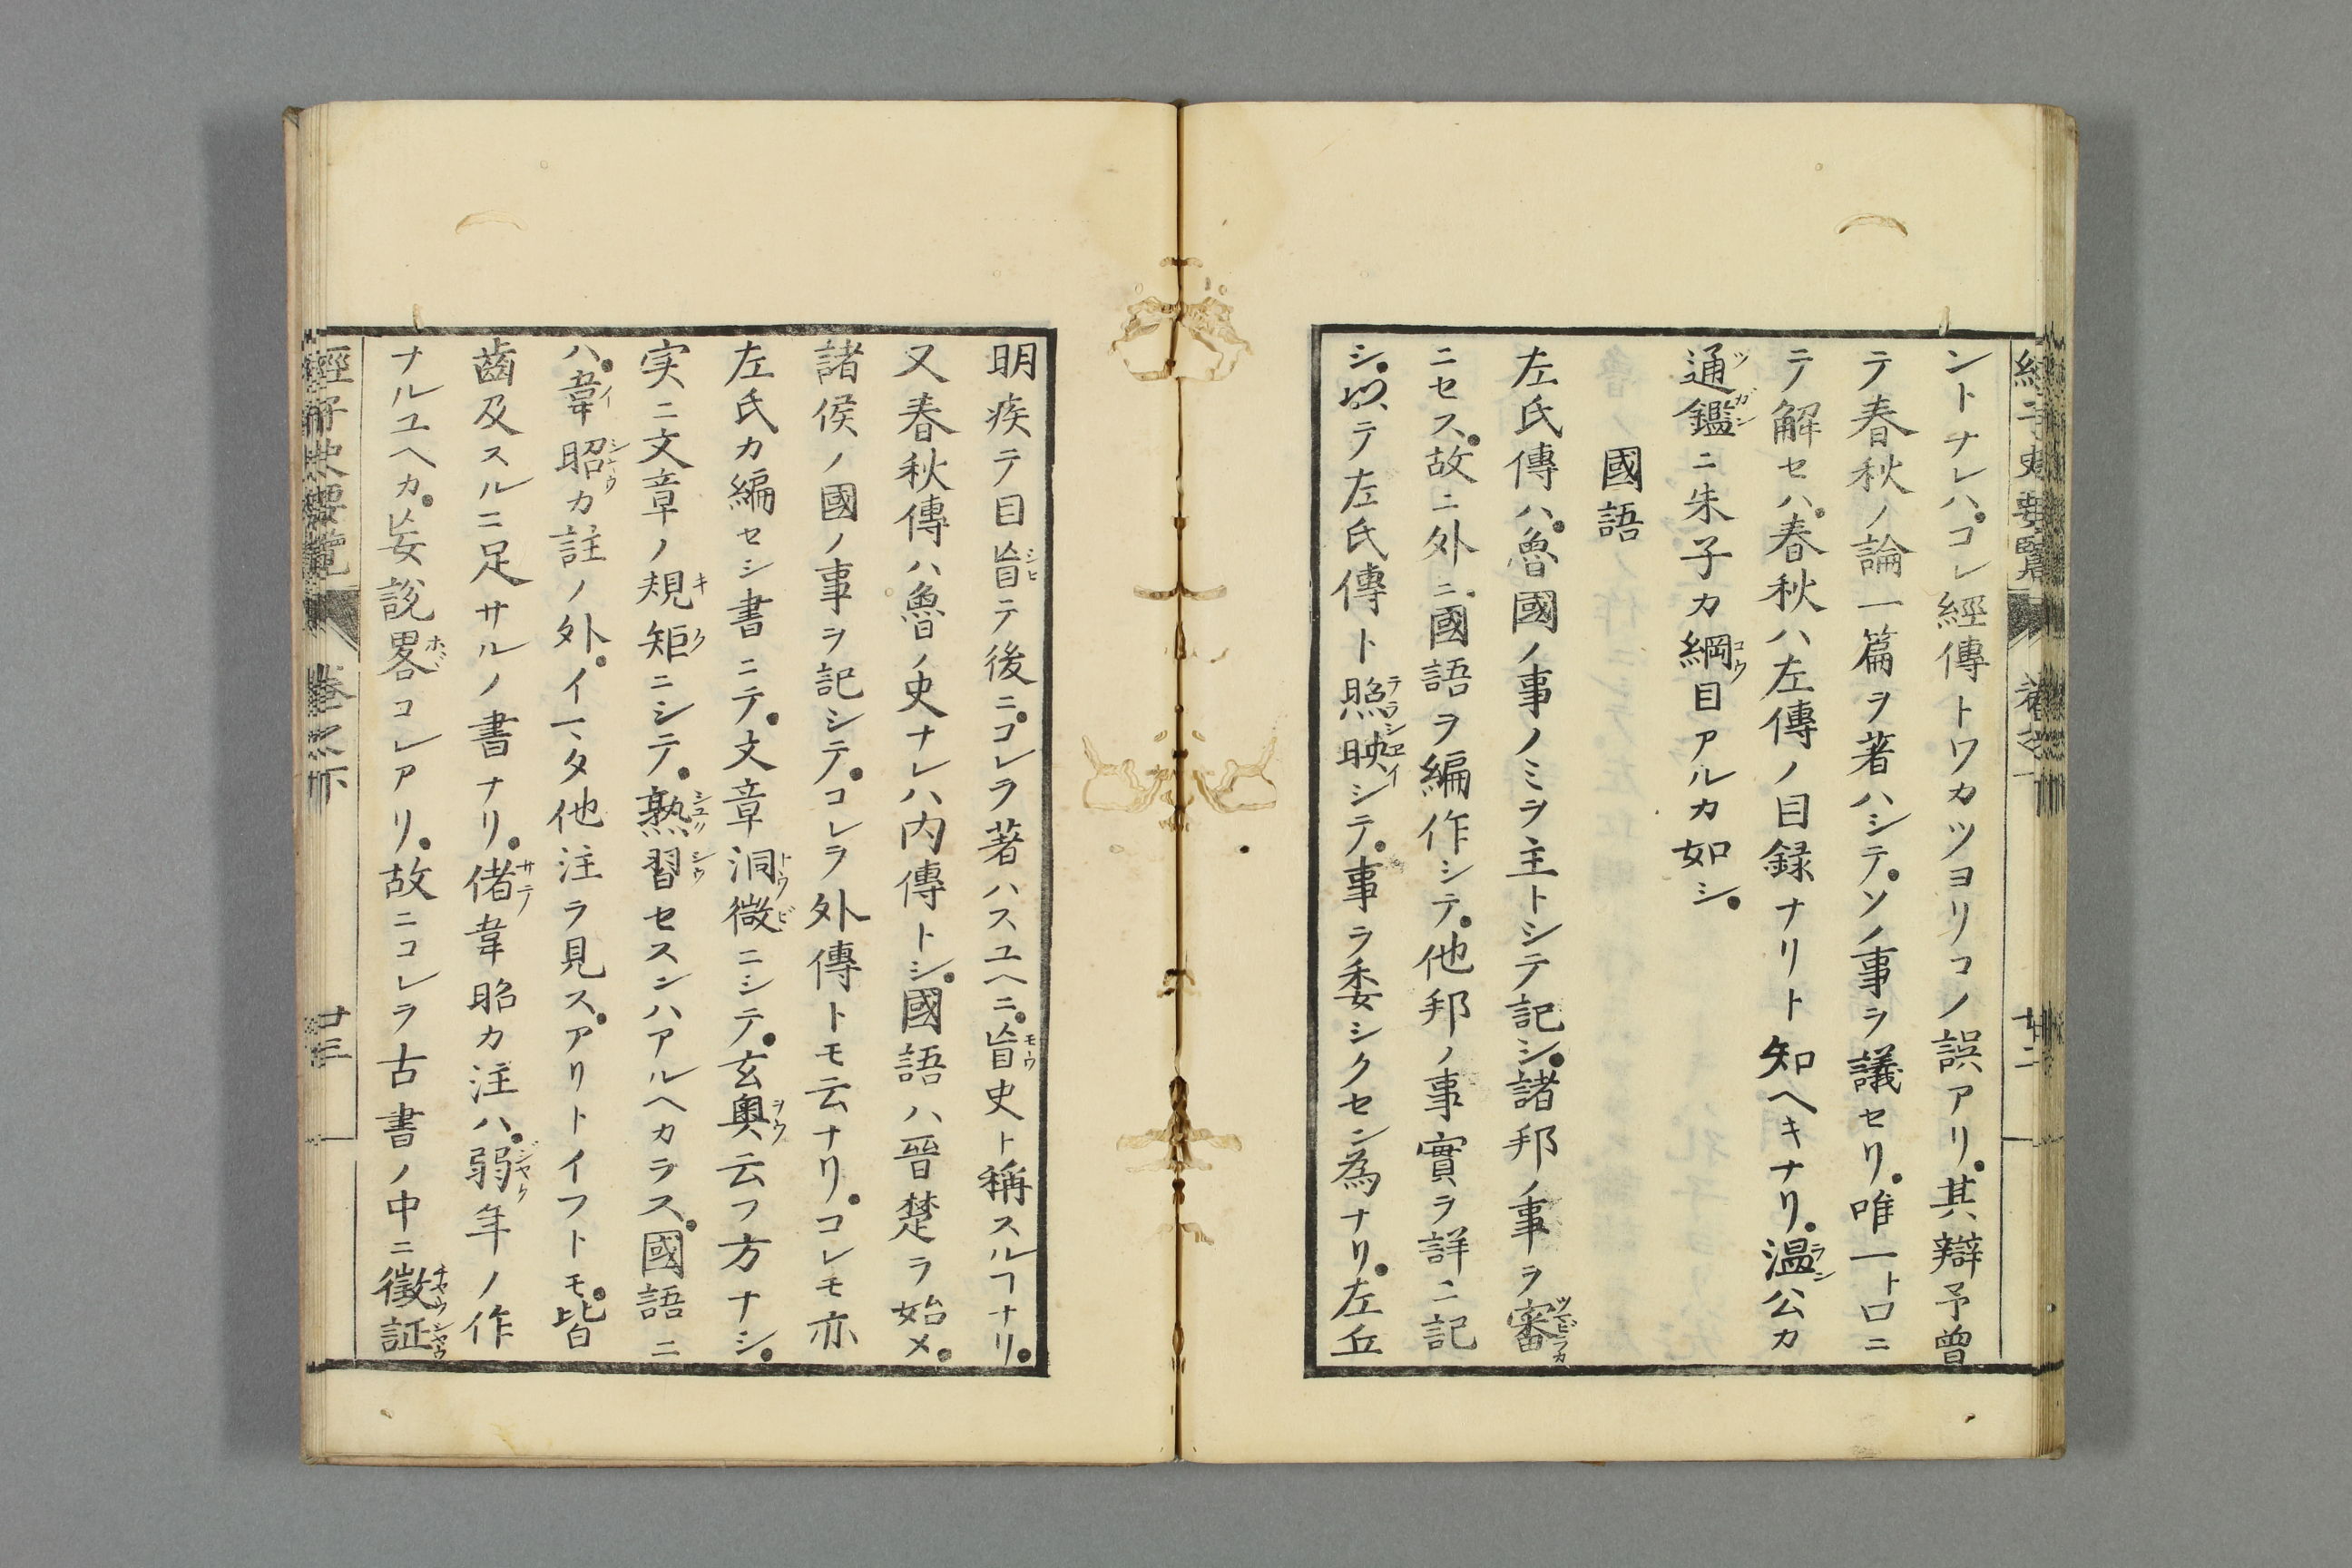 ントナレハ。コレ經傳トワカツヨリコノ誤アリ。其辯予曾
テ春秋ノ論一篇ヲ著ハシテ。ソノ事ヲ議セリ。唯一ト口ニ
テ解セハ。春秋ハ左傳ノ目録ナリト知ヘキナリ。温公カ
通鑑ニ朱子カ綱目アルカ如シ。
國語
左氏傳ハ。魯國ノ事ノミヲ主トシテ記シ。諸邦ノ事ヲ審
ニセス。故ニ外ニ。國語ヲ編作シテ。他邦ノ事實ヲ詳ニ記
シ。以テ左氏傳ト照映シテ。事ヲ委シクセン為ナリ。左丘
明疾テ目盲テ後ニ。コレヲ著ハスユヘニ。盲史ト稱スルヿナリ。
又春秋傳ハ魯ノ史ナレハ内傳トシ。國語ハ晉楚ヲ始メ。
諸侯ノ國ノ事ヲ記シテ。コレヲ外傳トモ云ナリ。コレモ亦
左氏カ編セシ書ニテ。文章洞微ニシテ。玄奥云フ方ナシ。
実ニ文章ノ規矩ニシテ。熟習セスンハアルヘカラス。國語ニ
ハ。韋昭カ註ノ外。イマタ他注ヲ見ス。アリトイフトモ。皆
齒及スルニ足サルノ書ナリ。偖韋昭カ注ハ。弱年ノ作
ナルユヘカ。妄説畧コレアリ。故ニコレヲ古書ノ中ニ徴証
經子史要覧 巻之下 廿三